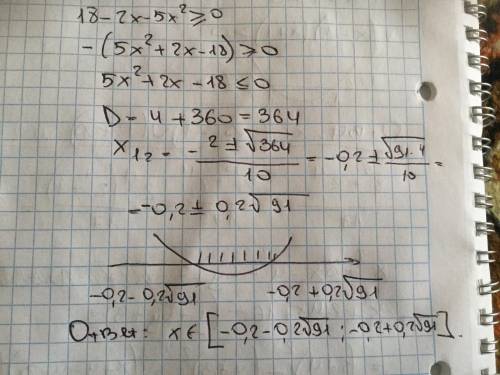 18 - 2x - 5x² ≥ 0
- (5x² + 2x - 18) ≥ 0
5x² + 2x - 18 ≤ 0
D = 4 + 360 = 364
x₁₂ = - (2 ± √364) / 10 = -0,2 ± √(91·4) / 10 =
= -0,2 ± 0,2√91
-0,2 - 0,2√91 -0,2 + 0,2√91
Ответ: x ∈ [-0,2 - 0,2√91 ; -0,2 + 0,2√91].